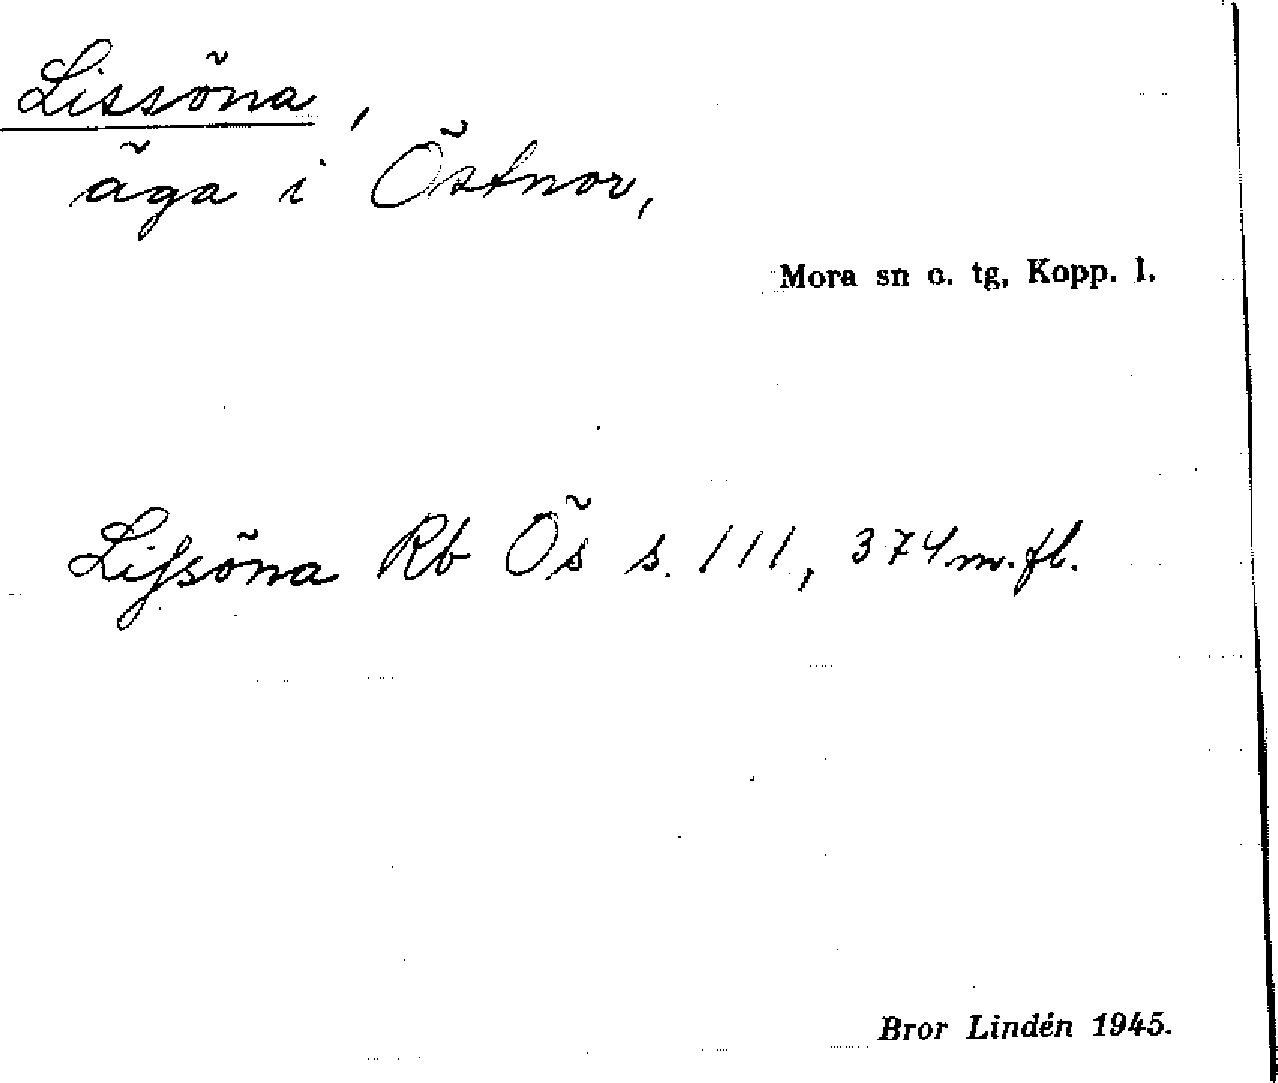 Lissöna,
äga i Östnor,
Mora sn o. tg, Kopp. l.
Liſsöna Rb Ös s. 111, 374 m. fl.
Bror Lindén 1945.